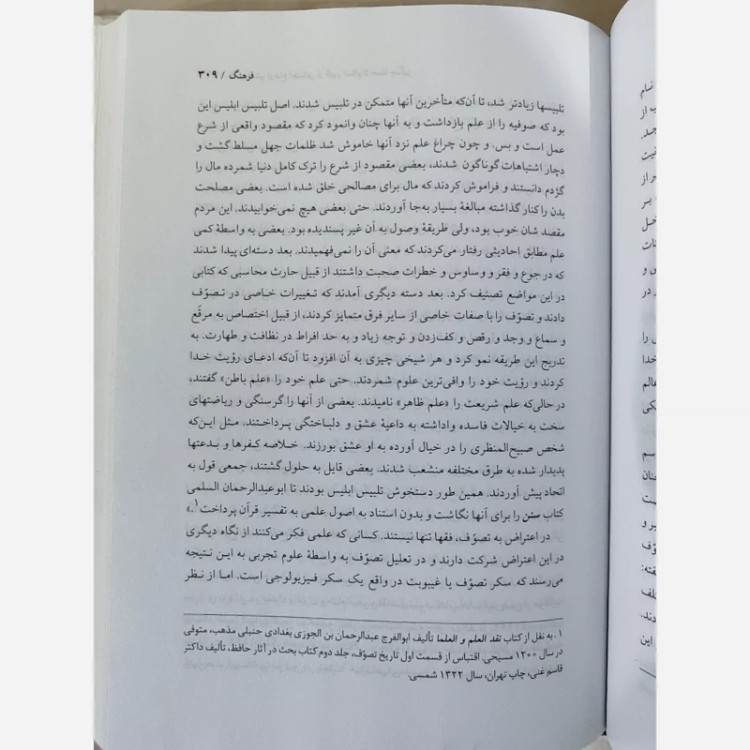 فرهنگ / ۳۰۹
تلبیسها زیادتر شد، تا آن‌که متأخرین آنها متمکن در تلبیس شدند. اصل تلبس ابلیس این
بود که صوفیه را از علم بازداشت و به آنها چنان وانمود کرد که مقصود واقعی از شرع
عمل است و بس. و چون چراغ علم نزد آنها خاموش شد ظلمات جهل مسلط گشت و
دچار اشتباهات گوناگون شدند، بعضی مقصود از شرع را ترک کامل دنیا شمرده مال را
گژدم دانستند و فراموش کردند که مال برای مصالحی خلق شده است. بعضی مصلحت
بدن را کنار گذاشته مبالغهٔ بسیار به‌جا آوردند. حتی بعضی هیچ نمی‌خوابیدند. این مردم
مقصد شان خوب بود، ولی طریقهٔ وصول به آن غیر پسندیده بود. بعضی به واسطهٔ کمی
علم مطابق احادیثی رفتار می‌کردند که معنی آن را نمی‌فهمیدند. بعد دسته‌ای پیدا شدند
که در جوع و فقر و وساوس و خطرات صحبت داشتند از قبیل حارث محاسبی که کتابی
در این مواضع تصنیف کرد. بعد دسته دیگری آمدند که تغییرات خاصی در تصوّف
دادند و تصوّف را با صفات خاصی از سایر فرق متمایز کردند، از قبیل اختصاص به مرقّع
و سماع و وجد و رقص و کف‌زدن و توجه زیاد و به حد افراط در نظافت و طهارت. به
تدریج این طریقه نمو کرد و هر شیخی چیزی به آن افزود تا آن‌که ادعای رؤیت خدا
کردند و رؤیت خود را وافی‌ترین علوم شمردند. حتی علم خود را «علم باطن» گفتند،
درحالی‌که علم شریعت را «علم ظاهر» نامیدند. بعضی از آنها را گرسنگی و ریاضتهای
سخت به خیالات فاسده واداشته به داعیهٔ عشق و دلباختگی پرداختند. مثل این‌که
شخص صبیح‌المنظری را در خیال آورده به او عشق بورزند. خلاصه کفرها و بدعتها
پدیدار شده به طرق مختلفه منشعب شدند. بعضی قایل به حلول گشتند، جمعی قول به
اتحاد پیش آوردند. همین طور دستخوش تلبیس ابلیس بودند تا ابوعبدالرحمان السلمی
کتاب سنن را برای آنها نگاشت و بدون استناد به اصول علمی به تفسیر قرآن پرداخت۱.»
در اعتراض به تصوّف، فقها تنها نیستند. کسانی که علمی فکر می‌کنند از نگاه دیگری
در این اعتراض شرکت دارند و در تعلیل تصوّف به واسطهٔ علوم تجربی به این نتیجه
می‌رسند که سکر تصوّف یا غیبوبت در واقع یک سکر فیزیولوجی است. اما از نظر
۱ . به نقل از کتاب نقد العلم و العلما تألیف ابوالفرج عبدالرحمان بن الجوزی بغدادی حنبلی مذهب، متوفی
در سال ۱۲۰۰ مسیحی. اقتباس از قسمت اول تاریخ تصوّف، جلد دوم کتاب بحث در آثار حافظ، تألیف داکتر
قاسم غنی، چاپ تهران، سال ۱۳۲۲ شمسی.